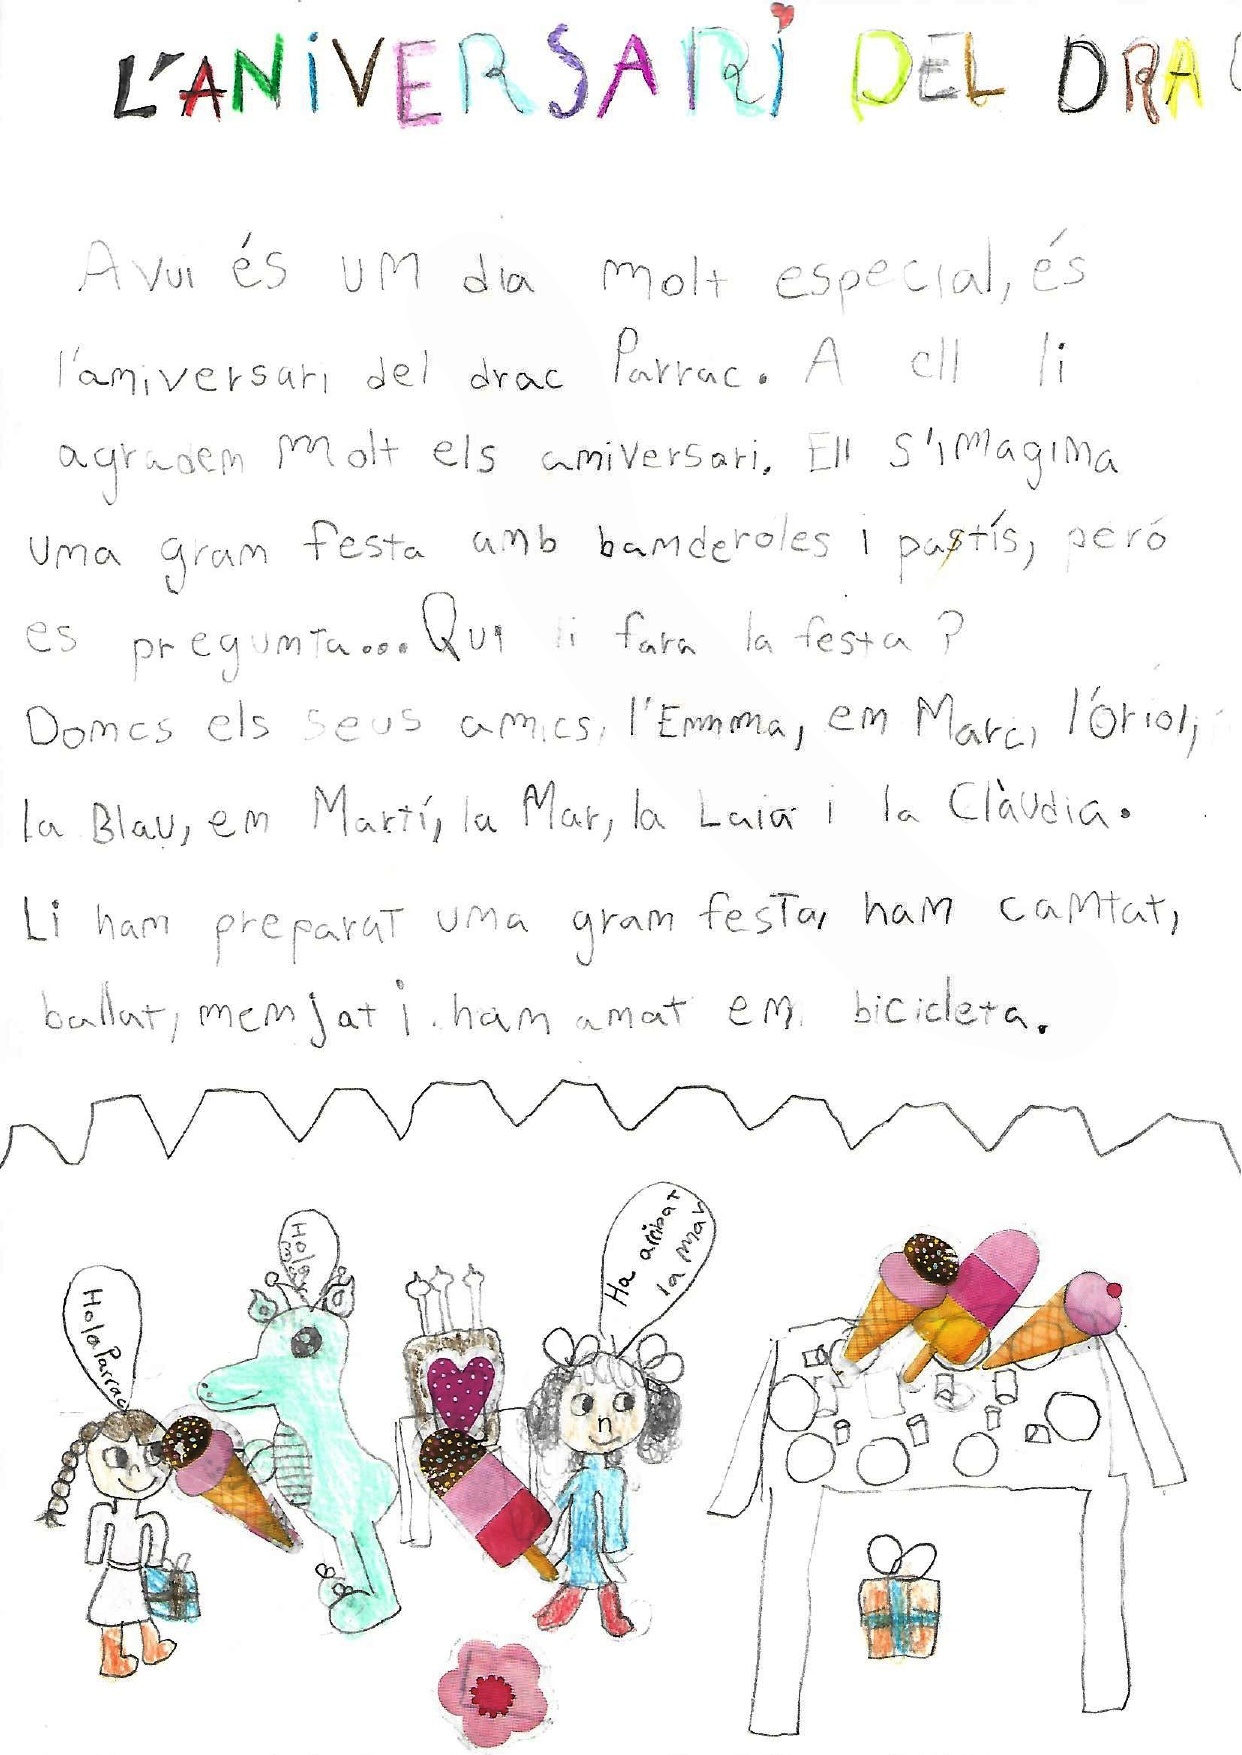 L'ANIVERSARI DEL DRAC
Avui és um dia molt especial, és
l'amiversari del drac Parrac. A ell li
agradem molt els amiversari. Ell s'imagima
uma gram festa amb bamderoles i pastís, peró
es pregumta... Qui li fara la festa?
Domcs els seus amics, l'Emma, em Marc, l'oriol,
la Blau, em Martí, la Mar, la Laia i la Clàudia.
Li ham preparat uma gram festa, ham camtat,
ballat, memjat i ham amat em bicicleta.
Hola Parrac
Hola
Ha arribat
la mar